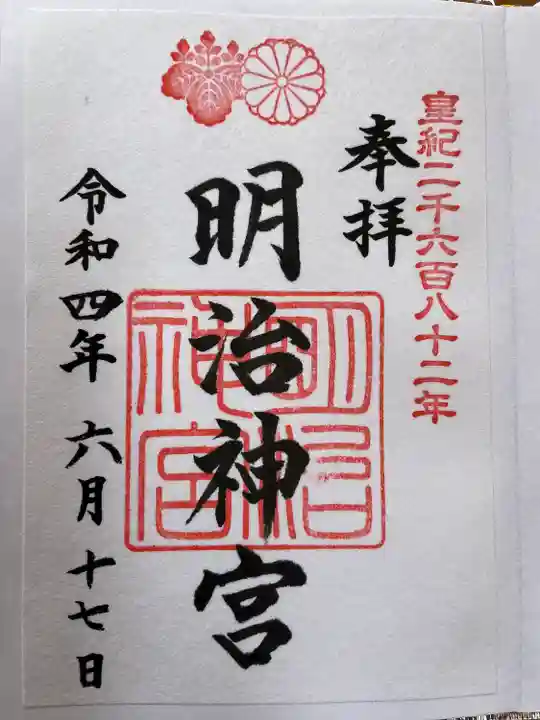 皇紀二千六百八十二年
奉拝
明治神宮
明治神宮
令和四年 六月十七日